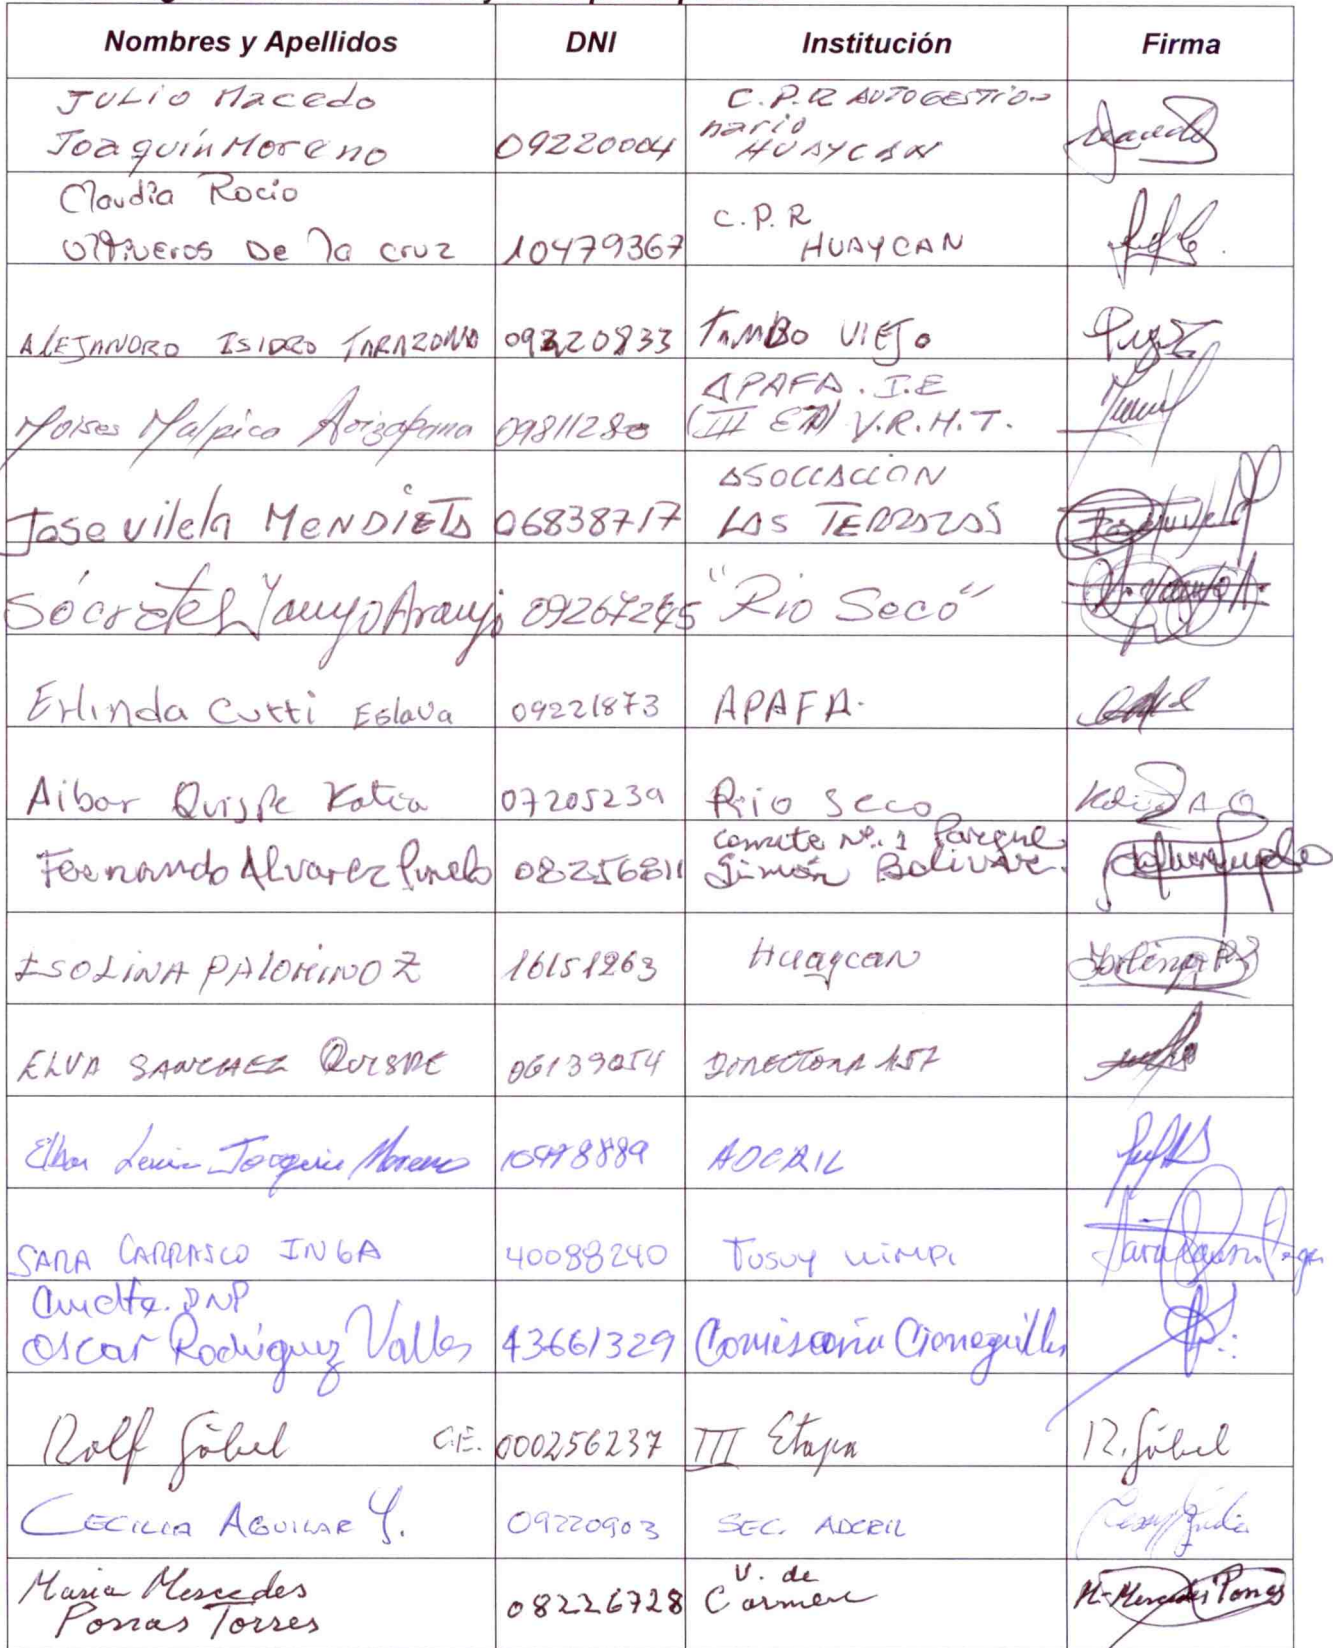 Nombres y Apellidos DNI Institución Firma
JULIO Macedo C.P.R AUTOGESTIO
Joaquín Moreno 09220004 nario
HUAYCAN
Claudia Rocio C.P.R
Oltiveros De la cruz 10479367 HUAYCAN
ALEJANDRO ISIDRO TARAZONA 09220833 TAMBO VIEJO
APAFA. I.E
Moises Malpica Arizapana 09811280 (III ETA) V.R.H.T.
ASOCIACION
Jose vilela MENDIETA 06838717 LAS TERRAZAS
Sócrates Yauyo Araujo 09267245 "Rio Seco"
Erlinda Cutti Eslava 09221873 APAFA.
Aibar Quispe Katia 07205239 Rio Seco
Comite Nº. 1 Parque
Fernando Alvarez Pinelo 08256811 Simón Bolivar.
ISOLINA PALOMINO Z 16151263 Huaycan
ELVA SANCHEZ QUISPE 06139054 DIRECTORA 157
Joaquin Moreno 10478889 ADCRIL
SARA CARRASCO INGA 40088240 Tusuy wimpi
Cmdte. PNP
Oscar Rodriguez Valles 43661329 Comisaria Cieneguilla
Rolf Göbel C.E. 000256237 III Etapa R. Göbel
CECILIA AGUILAR Y. 09220903 SEC. ADCRIL
Maria Mercedes V. de
Porras Torres 08226728 Carmen M-Mercedes Porras